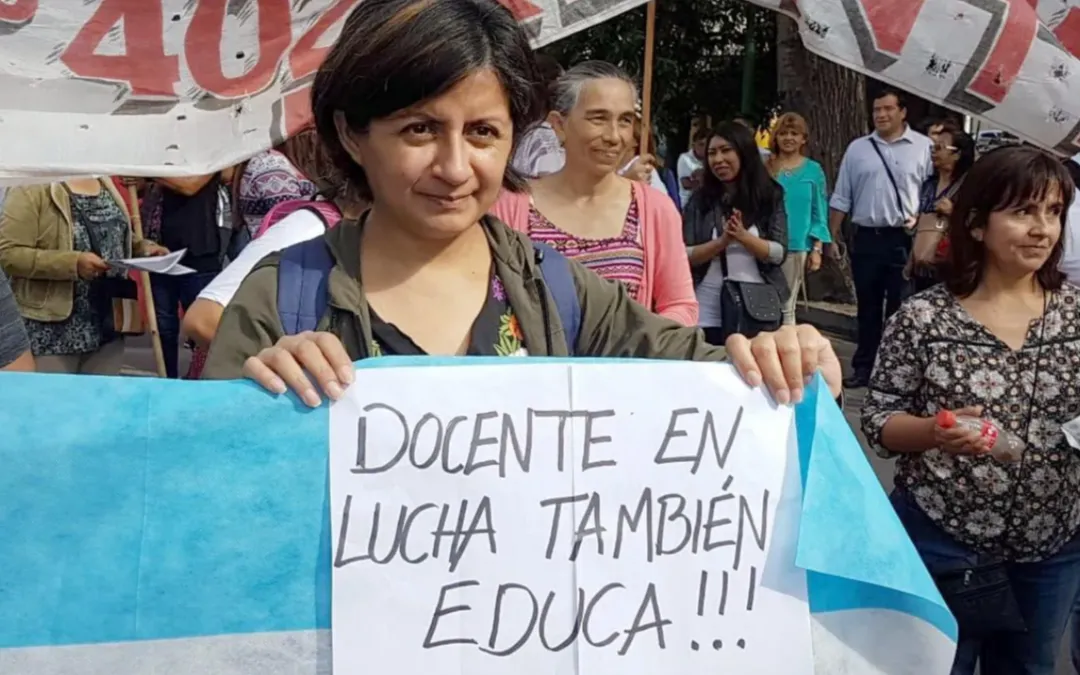 404
DOCENTE EN
LUCHA TAMBIÉN
EDUCA!!!